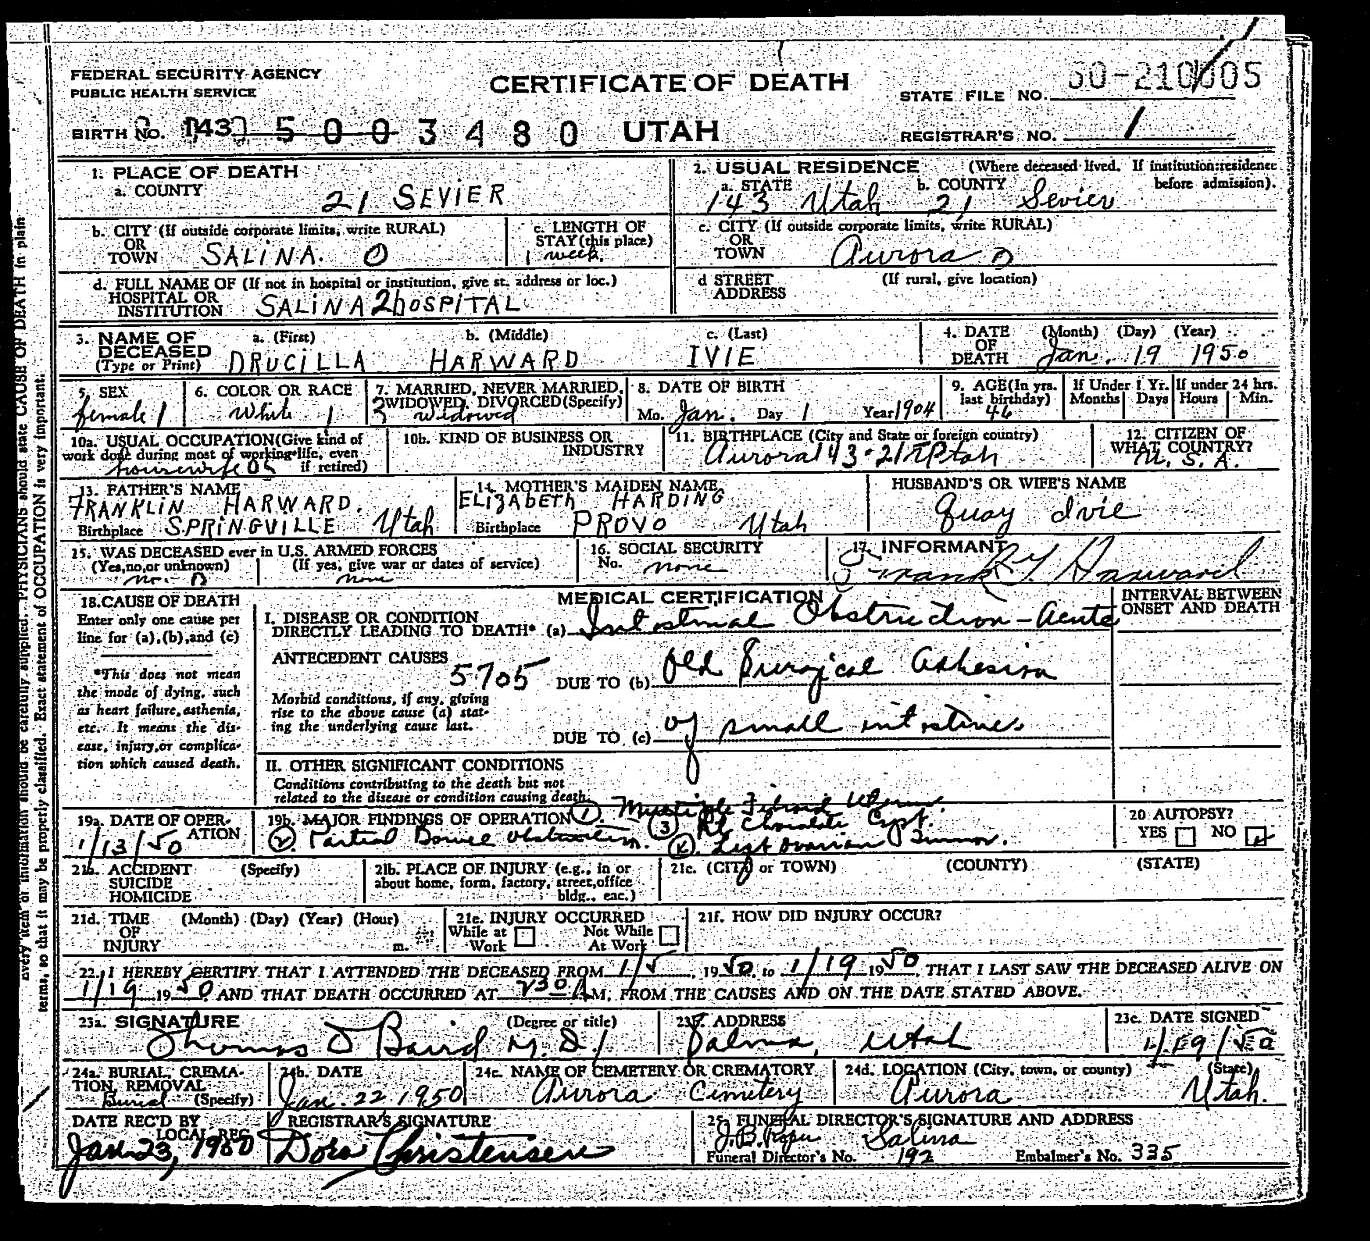 FEDERAL SECURITY AGENCY
PUBLIC HEALTH SERVICE
CERTIFICATE OF DEATH
STATE FILE NO. 50-210005
BIRTH NO. 143 5003480 UTAH
REGISTRAR'S NO. 1
1. PLACE OF DEATH
a. COUNTY
21 SEVIER
2. USUAL RESIDENCE (Where deceased lived. If institution: residence before admission).
a. STATE 143 Utah b. COUNTY 21 Sevier
b. CITY (If outside corporate limits, write RURAL)
OR
TOWN SALINA. 0
c. LENGTH OF
STAY (this place)
1 week.
c. CITY (If outside corporate limits, write RURAL)
OR
TOWN Aurora 0
d. FULL NAME OF (If not in hospital or institution, give st. address or loc.)
HOSPITAL OR
INSTITUTION SALINA 2 HOSPITAL
d STREET (If rural, give location)
ADDRESS
3. NAME OF DECEASED
(Type or Print)
a. (First) b. (Middle) c. (Last)
DRUCILLA HARWARD IVIE
4. DATE OF DEATH (Month) (Day) (Year)
Jan. 19 1950
5. SEX
female 1
6. COLOR OR RACE
White 1
7. MARRIED, NEVER MARRIED,
WIDOWED, DIVORCED (Specify)
3 widowed
8. DATE OF BIRTH
Mo. Jan. Day 1 Year 1904
9. AGE (In yrs. last birthday)
46
If Under 1 Yr.
Months Days
If under 24 hrs.
Hours Min.
10a. USUAL OCCUPATION (Give kind of
work done during most of working life, even
if retired)
housewife 05
10b. KIND OF BUSINESS OR
INDUSTRY
11. BIRTHPLACE (City and State or foreign country)
Aurora 143-21 Utah
12. CITIZEN OF
WHAT COUNTRY?
U. S. A.
13. FATHER'S NAME
FRANKLIN HARWARD.
Birthplace SPRINGVILLE Utah
14. MOTHER'S MAIDEN NAME
ELIZABETH HARDING
Birthplace PROVO Utah
HUSBAND'S OR WIFE'S NAME
Quay Ivie
15. WAS DECEASED ever in U.S. ARMED FORCES
(Yes, no, or unknown) (If yes, give war or dates of service)
no. 0 none
16. SOCIAL SECURITY
No. none
17. INFORMANT
Frank Y. Harward
18. CAUSE OF DEATH
Enter only one cause per
line for (a), (b), and (c)
*This does not mean
the mode of dying, such
as heart failure, asthenia,
etc. It means the dis-
ease, injury, or complica-
tion which caused death.
MEDICAL CERTIFICATION
INTERVAL BETWEEN
ONSET AND DEATH
I. DISEASE OR CONDITION
DIRECTLY LEADING TO DEATH* (a) Intestinal Obstruction - Acute
ANTECEDENT CAUSES
5705 DUE TO (b) Old Surgical Adhesion
Morbid conditions, if any, giving
rise to the above cause (a) stat-
ing the underlying cause last.
DUE TO (c) of small intestine.
II. OTHER SIGNIFICANT CONDITIONS
Conditions contributing to the death but not
related to the disease or condition causing death.
19a. DATE OF OPER-
ATION
1/13/50
19b. MAJOR FINDINGS OF OPERATION (1). Multiple Fibroid Uterus.
(2). Partial Bowel Obstruction. (3) Rt Chocolate Cyst.
(4). Left ovarian Tumor.
20 AUTOPSY?
YES NO
21a. ACCIDENT (Specify)
SUICIDE
HOMICIDE
21b. PLACE OF INJURY (e.g., in or
about home, form, factory, street, office
bldg., eac.)
21c. (CITY or TOWN) (COUNTY) (STATE)
21d. TIME (Month) (Day) (Year) (Hour)
OF
INJURY m.
21e. INJURY OCCURRED
While at Not While
Work At Work
21f. HOW DID INJURY OCCUR?
22. I HEREBY CERTIFY THAT I ATTENDED THE DECEASED FROM 1/5, 1950 to 1/19 1950, THAT I LAST SAW THE DECEASED ALIVE ON
1/19 1950 AND THAT DEATH OCCURRED AT 730 A M. FROM THE CAUSES AND ON THE DATE STATED ABOVE.
23a. SIGNATURE (Degree or title)
Thomas D Baird M.D.
23b. ADDRESS
Salina, Utah
23c. DATE SIGNED
1/19/50
24a. BURIAL, CREMA-
TION, REMOVAL
Burial (Specify)
24b. DATE
Jan. 22, 1950
24c. NAME OF CEMETERY OR CREMATORY
Aurora Cemetery
24d. LOCATION (City, town, or county) (State)
Aurora Utah.
DATE REC'D BY
LOCAL REG.
Jan 23, 1950
REGISTRAR'S SIGNATURE
Dora Christensen
25. FUNERAL DIRECTOR'S SIGNATURE AND ADDRESS
J.B. Salina
Funeral Director's No. 192 Embalmer's No. 335
Every item of information should be carefully supplied. PHYSICIANS should state CAUSE OF DEATH in plain
terms, so that it may be properly classified. Exact statement of OCCUPATION is very important.